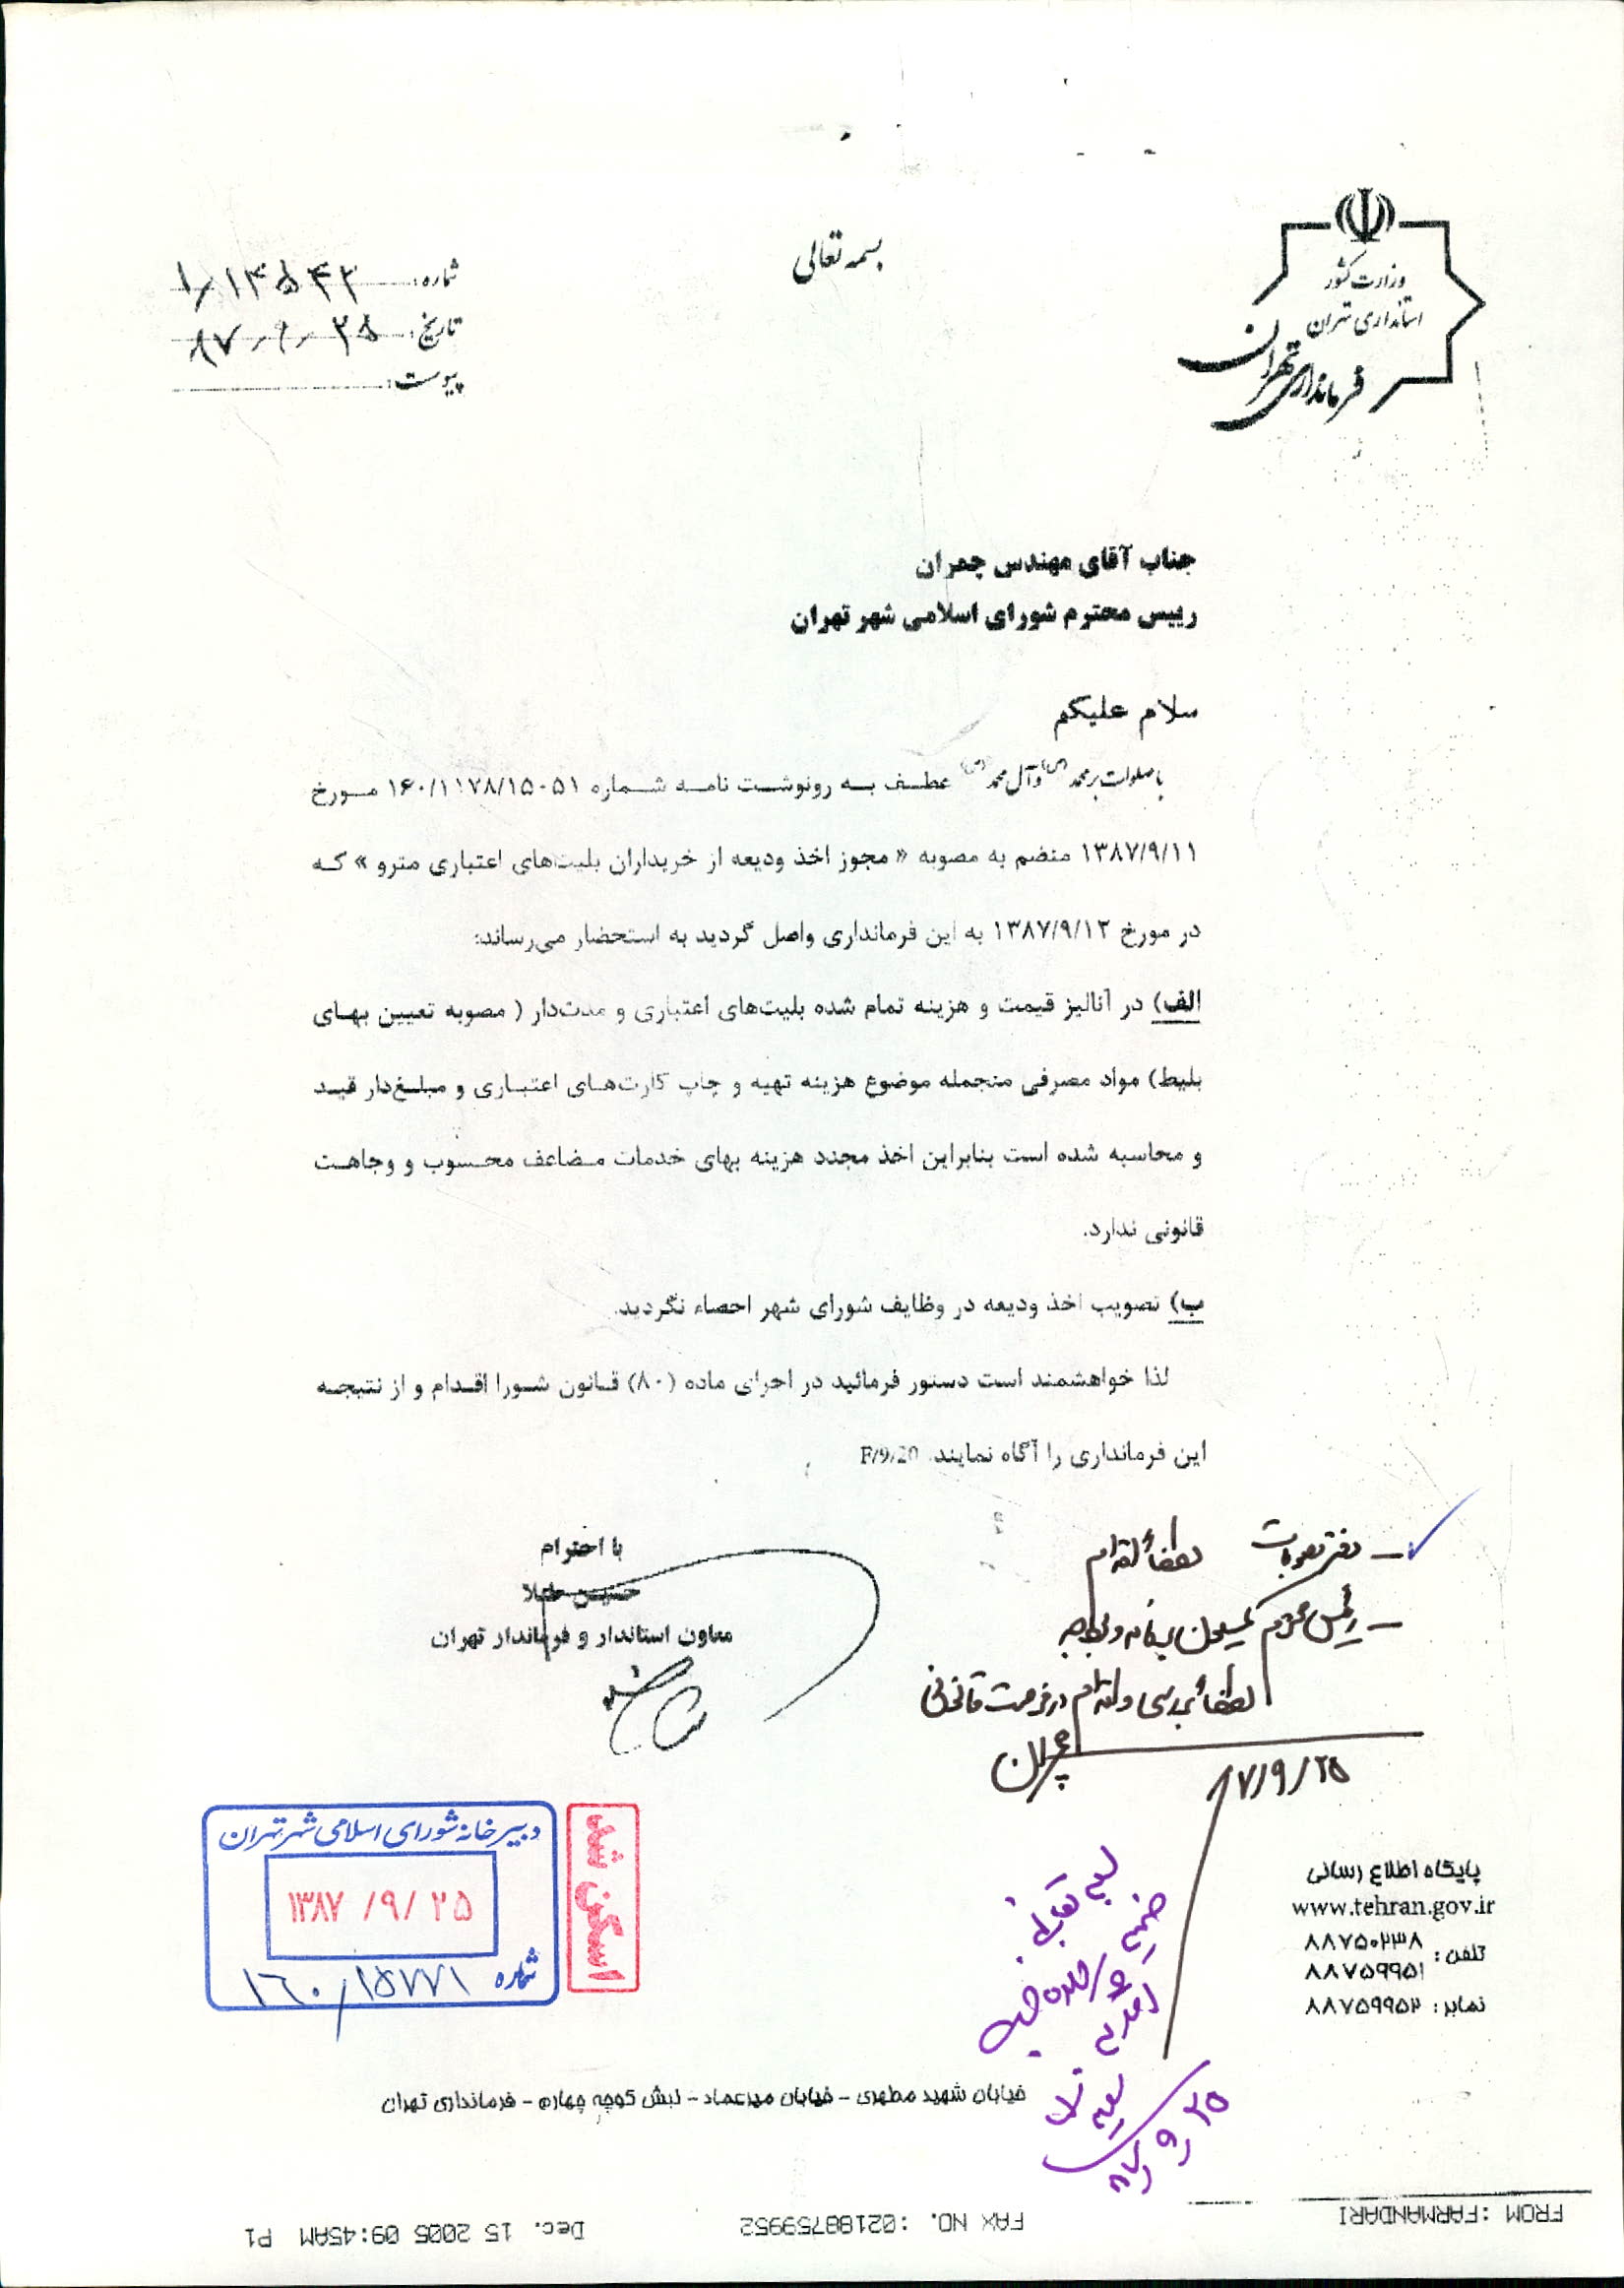 بسمه تعالی
وزارت کشور
استانداری تهران
فرمانداری تهران
شماره: ۱/۱۴۵۴۲
تاریخ: ۸۷/۹/۲۵
پیوست:
جناب آقای مهندس چمران
رییس محترم شورای اسلامی شهر تهران
سلام علیکم
با صلوات بر محمد (ص) و آل محمد (ص) عطف به رونوشت نامه شماره ۱۶۰/۱۱۷۸/۱۵۰۵۱ مورخ
۱۳۸۷/۹/۱۱ منضم به مصوبه « مجوز اخذ ودیعه از خریداران بلیت‌های اعتباری مترو » که
در مورخ ۱۳۸۷/۹/۱۲ به این فرمانداری واصل گردید به استحضار می‌رساند:
الف) در آنالیز قیمت و هزینه تمام شده بلیت‌های اعتباری و مدت‌دار ( مصوبه تعیین بهای
بلیط) مواد مصرفی منجمله موضوع هزینه تهیه و چاپ کارت‌های اعتباری و مبلغ‌دار قید
و محاسبه شده است بنابراین اخذ مجدد هزینه بهای خدمات مضاعف محسوب و وجاهت
قانونی ندارد.
ب) تصویب اخذ ودیعه در وظایف شورای شهر احصاء نگردید.
لذا خواهشمند است دستور فرمائید در اجرای ماده (۸۰) قانون شورا اقدام و از نتیجه
این فرمانداری را آگاه نمایند. F/9/20
با احترام
حسین طلا
معاون استاندار و فرماندار تهران
– دفتر مصوبات لطفاً اقدام
– رئیس محترم کمیسیون برنامه و بودجه
لطفاً بررسی و اقدام در فرصت قانونی
چمران
۸۷/۹/۲۵
دبیرخانه شورای اسلامی شهر تهران
۱۳۸۷ /۹/ ۲۵
شماره ۱۶۰/۱۵۷۷۱
اسکن شد
۸۷/۹/۲۵
پایگاه اطلاع رسانی
www.tehran.gov.ir
تلفن: ۸۸۷۵۰۲۳۸
۸۸۷۵۹۹۵۱
نمابر: ۸۸۷۵۹۹۵۲
خیابان شهید مطهری – خیابان میرعماد – نبش کوچه چهارم – فرمانداری تهران
FROM :FARMANDARI FAX NO. :02188759952 Dec. 15 2005 09:45AM P1